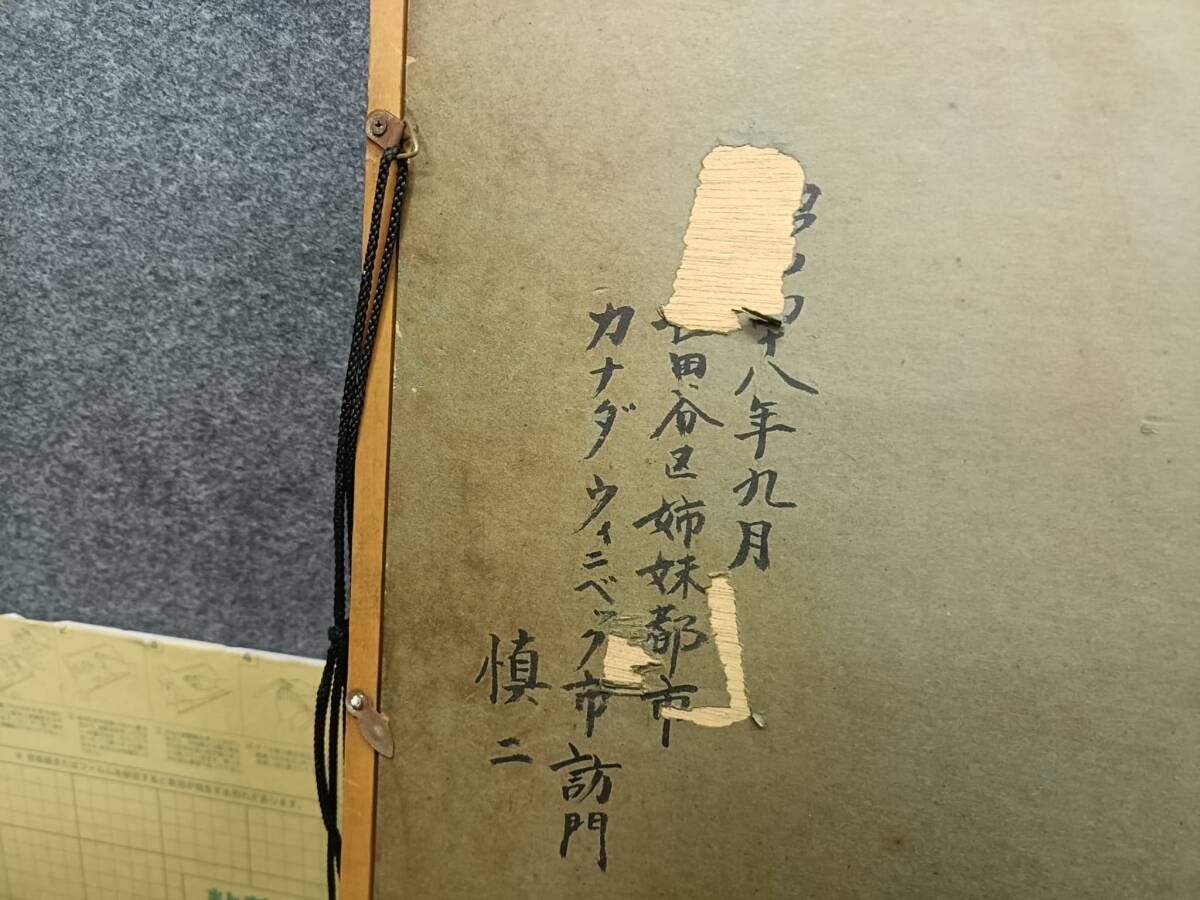 十八年九月
田谷区姉妹都市
カナダウィニペック市訪門
慎二